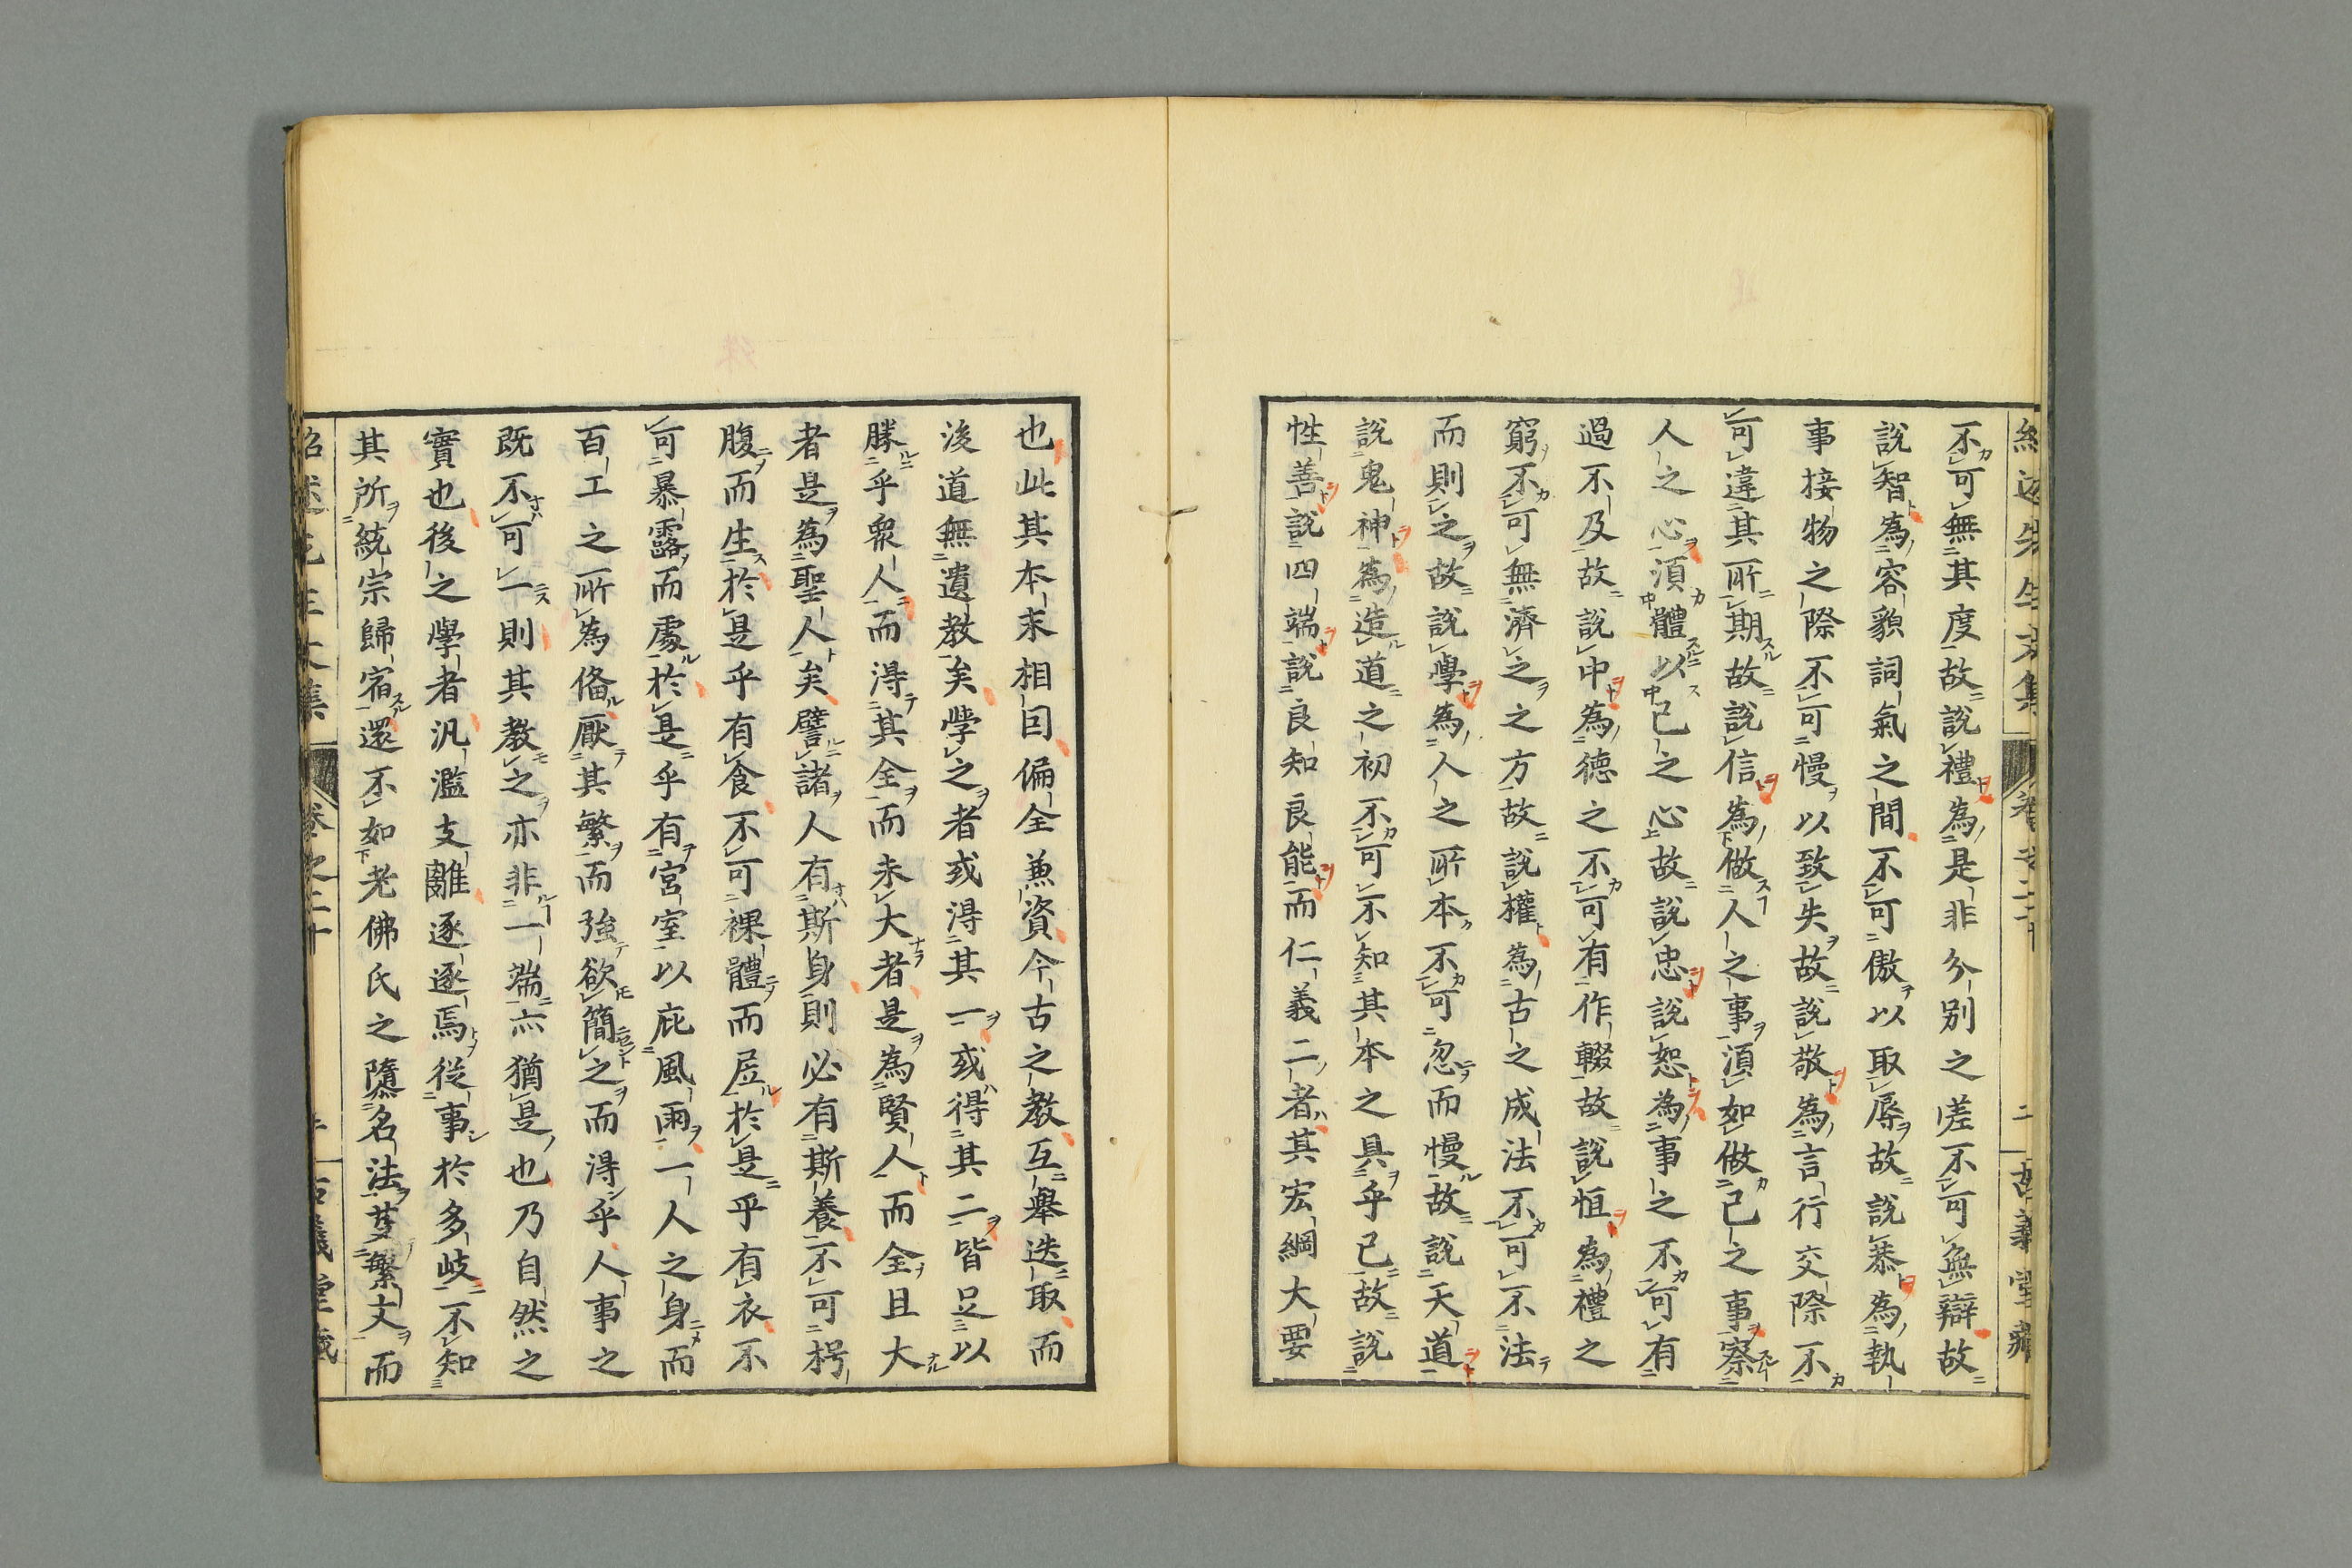 不可無其度故説禮為是非分別之嗟不可無辯故
説智為容貌詞氣之間不可傲以取辱故説恭為執
事接物之際不可慢以致失故説敬為言行交際不
可違其所期故説信為做人之事須如做己之事察
人之心須體以己之心故説忠説恕為事之不可有
過不及故説中為徳之不可有作輟故説恒為禮之
窮不可無濟之之方故説權為古之成法不可不法
而則之故説學為人之所本不可忽而慢故説天道
説鬼神為造道之初不可不知其本之具乎已故説
性善説四端説良知良能而仁義二者其宏綱大要
也此其本末相因偏全兼資今古之教互舉迭取而
後道無遺教矣學之者或得其一或得其二皆足以
勝乎衆人而得其全而未大者是為賢人而全且大
者是為聖人矣譬諸人有斯身則必有斯養不可枵
腹而生於是乎有食不可裸體而居於是乎有衣不
可暴露而處於是乎有宮室以庇風雨一人之身而
百工之所為備厭其繁而強欲簡之而得乎人事之
既不可一則其教之亦非一端亦猶是也乃自然之
實也後之學者汎濫支離逐逐焉從事於多岐不知
其所統宗歸宿還不如老佛氏之隳名法芟繁文而
紹述先生文集
卷之二十
古義堂藏